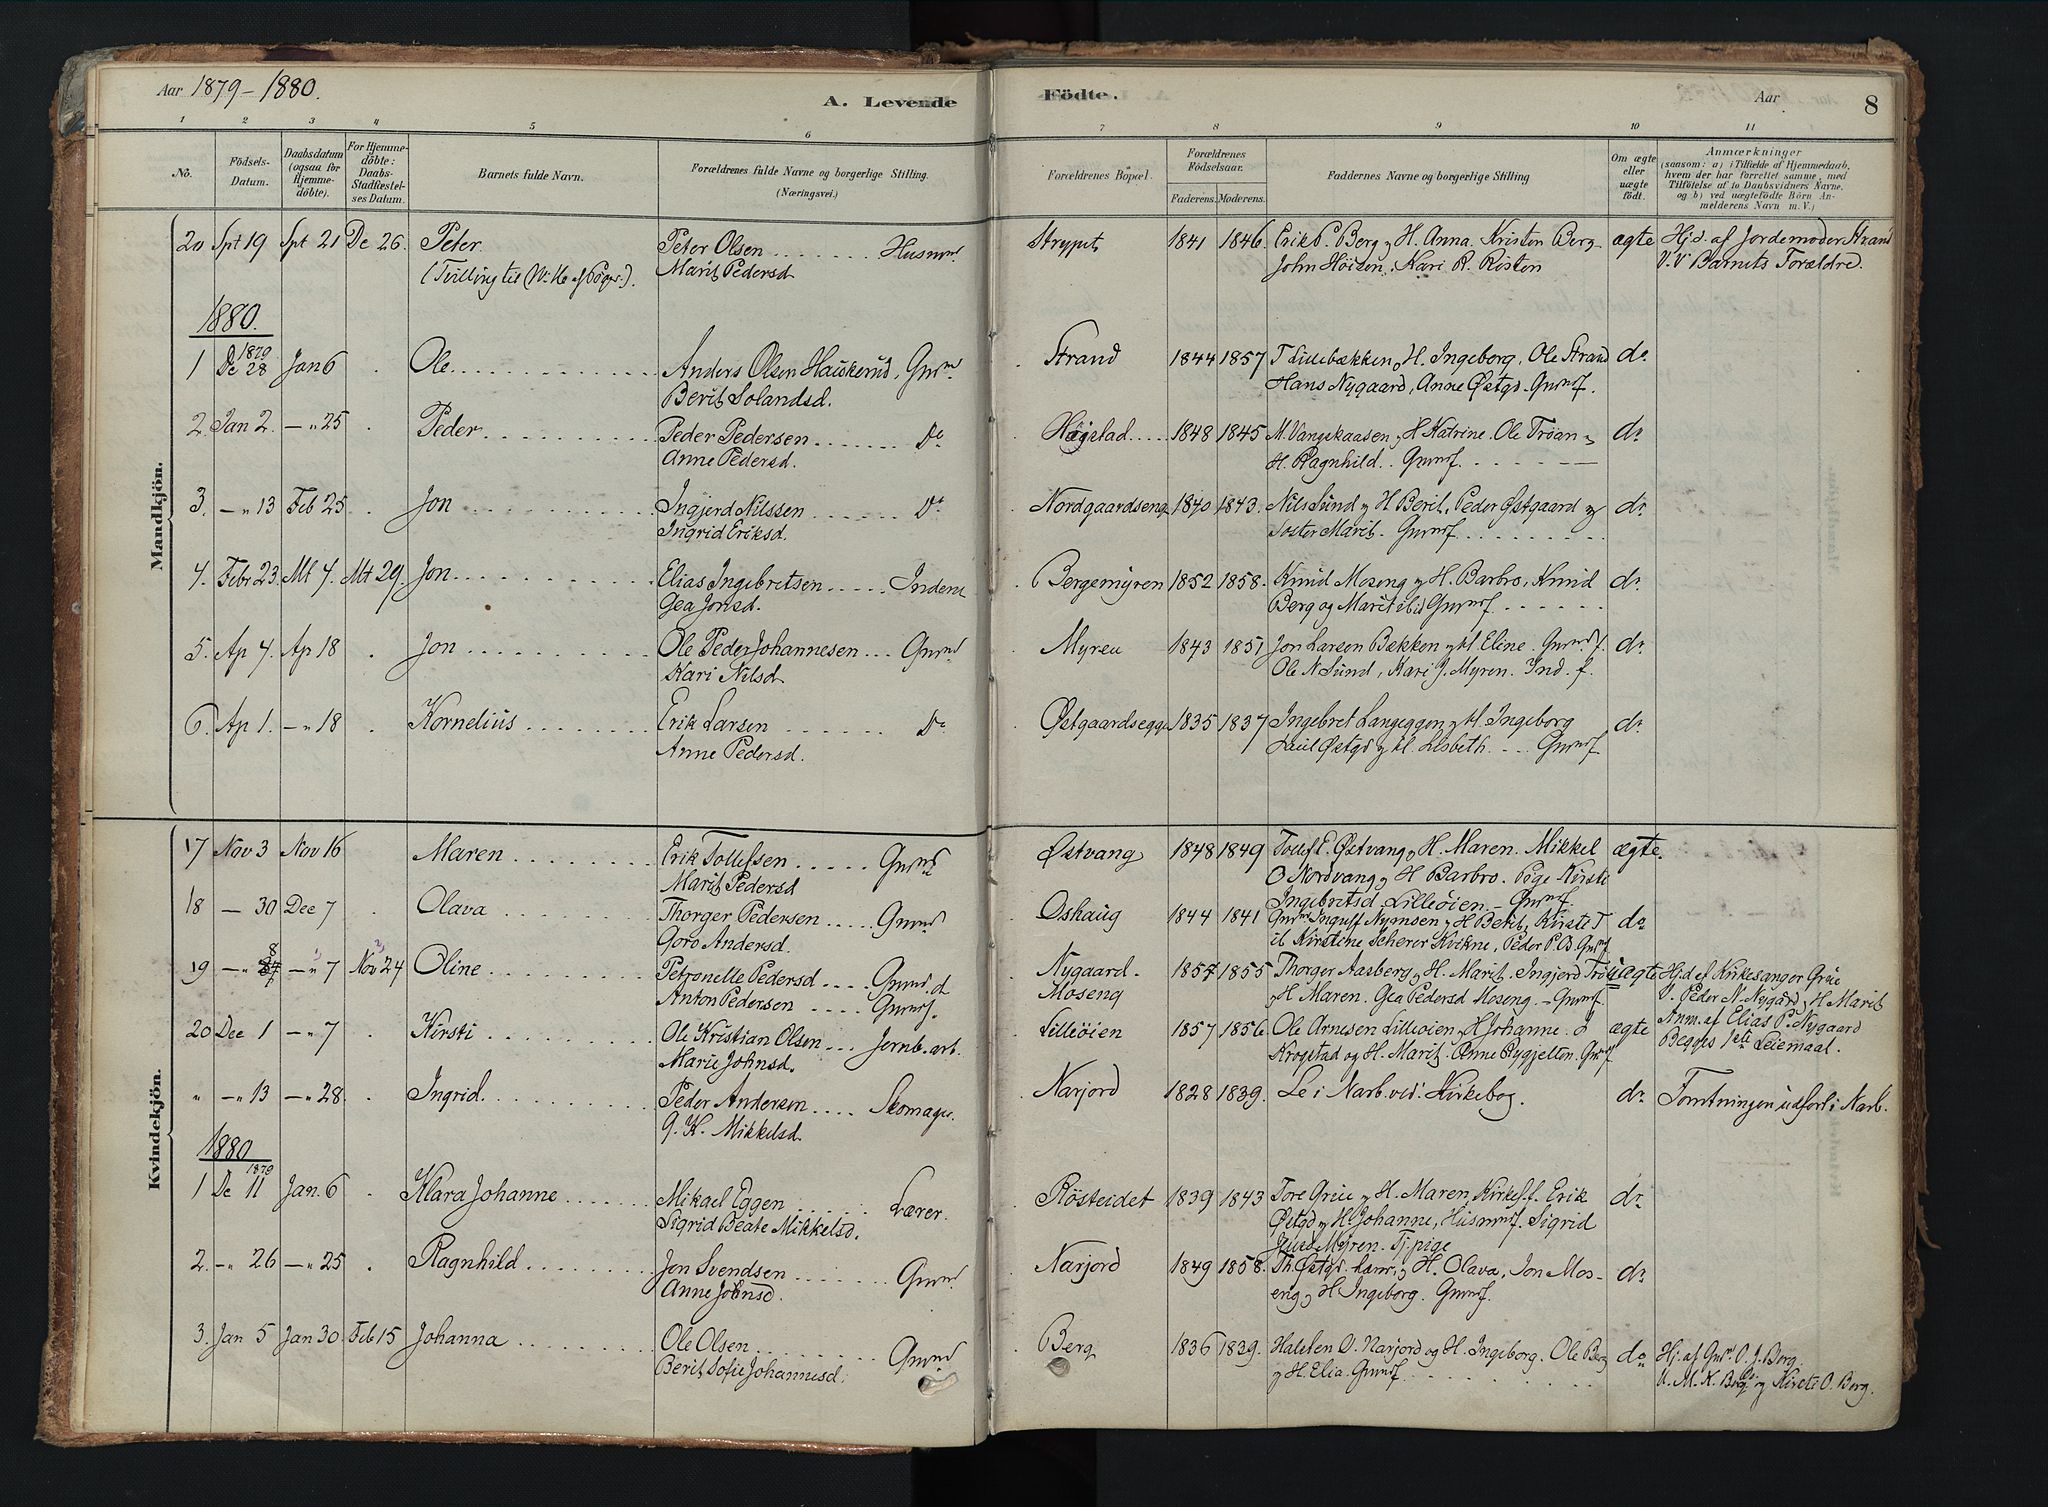 Aar 1879-1880.
A. Levende
Födte.
Aar
8
1 2 3 4 5 6 7 8 9 10 11
No.
Födsels-
Datum.
Daabsdatum
(ogsaa for
Hjemme-
döbte).
For Hjemme-
döbte:
Daabs-
Stadfæstel-
ses Datum.
Barnets fulde Navn.
Forældrenes fulde Navne og borgerlige Stilling.
(Næringsvei.)
Forældrenes Bopæl.
Forældrenes
Födselsaar.
Faderens. Moderens.
Faddernes Navne og borgerlige Stilling
Om ægte
eller
uægte
födt.
Anmærkninger
(saasom: a) i Tilfælde af Hjemmedaab,
hvem der har forrettet samme, med
Tilföielse af to Daabsvidners Navne,
og b) ved uægtefödte Börn An-
melderens Navn m. V.)
Mandkjön.
20 Spt 19 Spt 21 De 26. Peter Peter Olsen Husmn. 1841 1846. Erik P. Berg og H. Anna. Kristen Berg ægte Hjd. af Jordemoder Strand
(Tvilling til Marit Pedersd John Höisen, Kari R. Risten V. V Barnets Forældre.
1880.
1879
1 De 28 Jan 6 Ole Anders Olsen Gmd Strand 1844 1857 T Lillebækken og H. Ingeborg, Ole Strand do
Berit Solandsd. Hans Nygaard, Anne Østgd. Gmdf.
2. Jan 2. - " 25 Peder Peder Pedersen Do 1848 1845 M. Vangskaasen og H Katrine. Ole Tröan og do
Anne Pedersd. H. Ragnhild. Gmdf.
3. - " 13 Feb 25 Jon Ingjerd Nilssen Do Nordgaardseng 1840 1843. Nils Sund og H Berit, Peder Østgaard og do
Ingrid Eriksd. Söster Marit. Gmdf.
4. Febr 23. Mt 7. Mt 29. Jon Elias Ingebretsen Inderst Bergemyren 1852 1858. Knud Moseng og H. Barbro, Knud do
Gea Jonsd. Berg og Marit ibid Gmdf.
5. Ap 4. Ap 18 Jon Ole Peder Johannesen Gmd Myren 1843 1851 Jon Larsen Bækken og H Eline. Gmdf. do
Kari Nilsd Ole N Sund, Kari J. Myren. Ind. f.
6. Ap 1. - " 18 Kornelius Erik Larsen Do Østgaardseggen 1835 1837 Ingebret Langeggen og H. Ingeborg do
Anne Pedersd. Østgd og H. Lisbeth. Gmdf.
Kvindekjön.
17 Nov 3 Nov 16 Maren Erik Tollefsen Gmd Østvang 1848 1849 Østvang og H. Maren. Mikkel ægte.
Marit Pedersd O Nordvang og H Barbro. Pige Kirste
Ingebretsd Lilleöien - Gmdf.
18 - 30 Dec 7 Olava Thorger Pedersen Gmd Oshaug 1844 1841 Gmd Nymoen og H Berit, Kirste T do
Goro Andersd. Kirstine Scherer Kvikne, Peder P. B. Gmdf
19 - " 8 - " 7 Nov 24 Oline Petronelle Pedersd Gmd. d Nygaard. 1857 1855 Thorger Aasberg og H. Marit. Ingjerd Tröen uægte Hjd af Kirkesanger Grüe
Anton Pedersen Gmds. Moseng og H Maren. Gea Pedersd Moseng. - Gmdf. V. Peder N. Nygård, H Marit
Anm. af Elias P. Nygaard
Begges 1ste Leiemaal.
20 Dec 1 - " 7 Kirsti Ole Kristian Olsen Jernb. arb. Lilleöien 1857 1856. Ole Arnesen Lilleöien og H Johanne. J ægte
Marie Johnsd. Krogstad og H. Marit. Anne Rygjelten. Gmdf
" - " 13 - " 28. Ingrid. Peder Andersen Skomager. Narjord 1828 1839. Se i Narb. vid. Kirkebog. do Forretningen udfört i Narb.
G. K. Mikkelsd.
1880
1879
1 De 11 Jan. 6 Klara Johanne Mikael Eggen Lærer. Rösteidet 1839 1843 Tore Grüe og H. Maren, Kirkes.f. Erik do
Sigrid Beate Mikkelsd. Østgd og H. Johanne, Husmdf. Sigrid
Myren. Tj. pige
2. - " 26 - " 25 Ragnhild Jon Svendsen Gmd Narjord 1849 1858. Th Østgd. og H. Olava, Jon Mos- do
Anne Johnsd. eng og H Ingeborg. Gmdf.
3. Jan 5 Jan 30. Feb 15 Johanna Ole Olsen Gmd Berg 1836 1839. Halsten O. Narjord og H. Ingeborg. Ole Berg do Hj. af Gmd. O. J. Berg.
Berit Sofie Johannesd. og H. Elia. Gmdf V. M. K. Berg og Kirsti O. Berg.